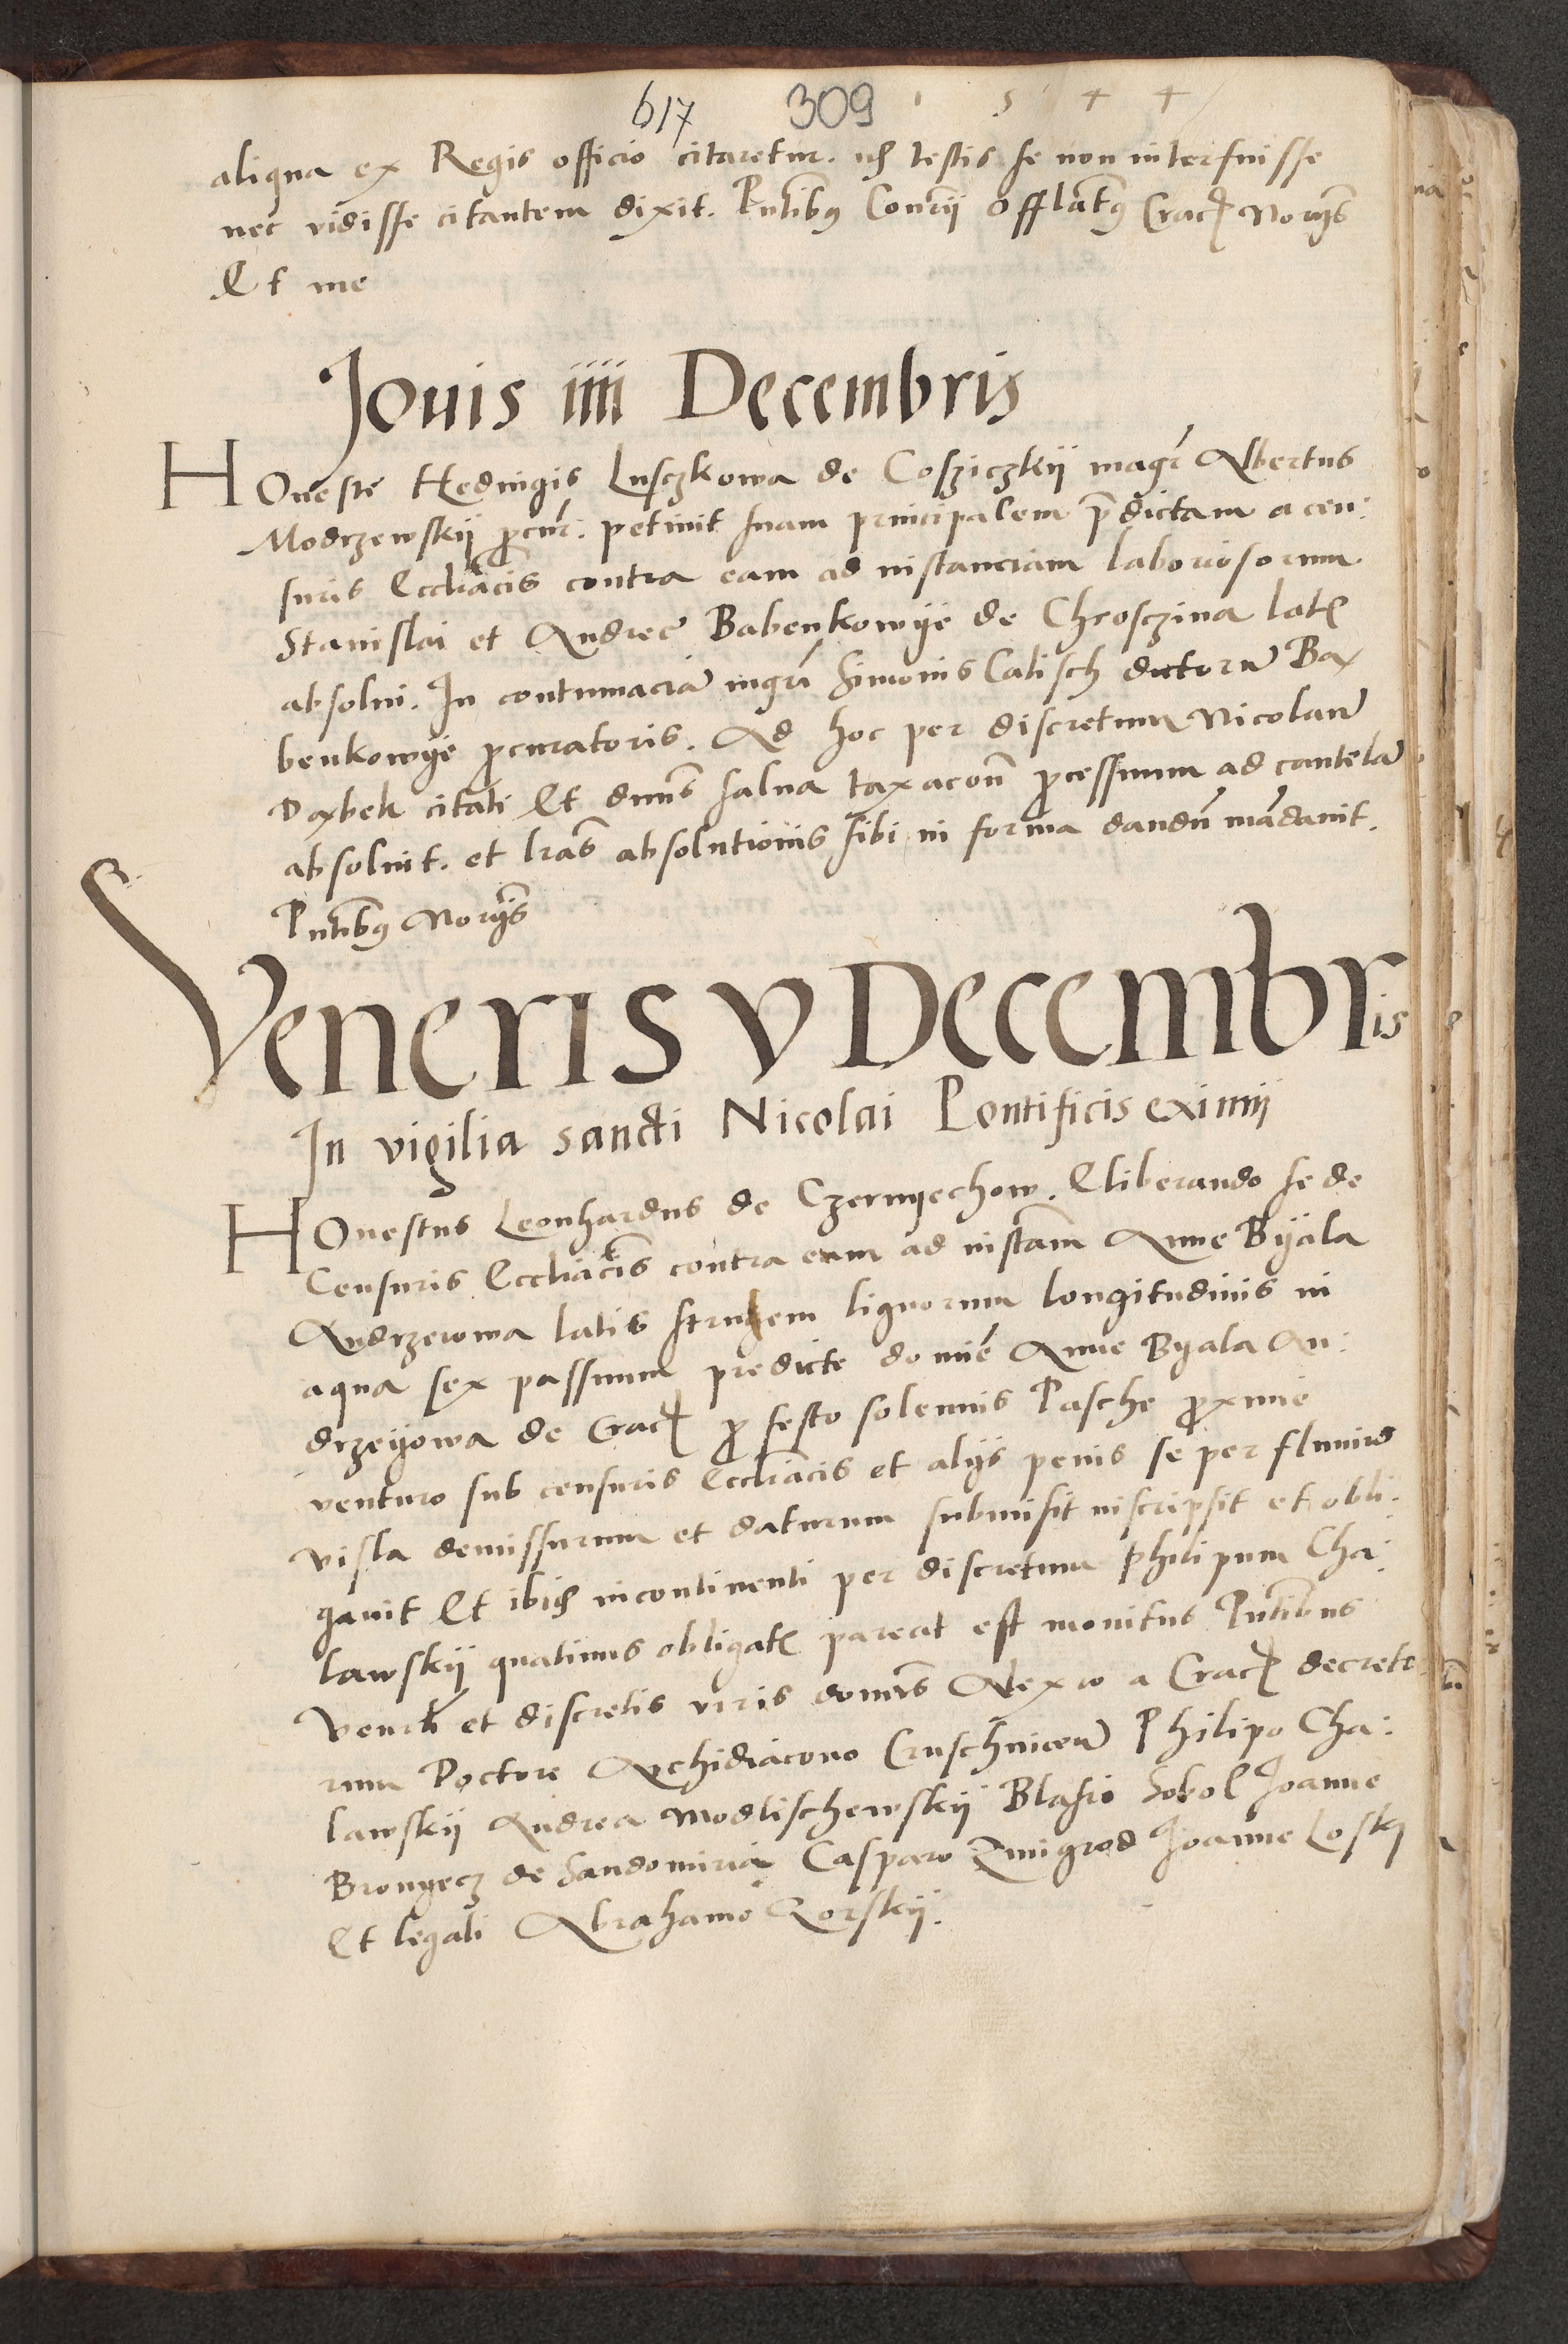 617 309 1 5 4 4
aliqua ex Regis officio citaretur. ids testis se non interfuisse
nec vidisse citantem dixit. Pntibus Consrij Offlatus Crac Noriis
Et me
Jouis iiii Decembris
HOneste Heduigis Lusczkowa de Cosziczkij magr Albertus
Modrzewskij pcur. petiuit suam principalem pdictam a cen:
suris Eccliacis contra eam ad instanciam laboriosorum
Stanislai et Andree Babenkowije de Chrosczina latis
absolui. In contumacia mgri Simonis Calisch dictoru Ba
benkowije pcuratoris. Ad hoc per discretum Nicolau
Paxbek citati Et dnus salua taxacone pcessuum ad cautela
absoluit. et lras absolutionis sibi in forma dandu madauit.
Pntibus Noriis
Veneris v Decembris
In vigilia sancti Nicolai Pontificis eximij
HOnestus Leonhardus de Czernyechow. Eliberando se de
Censuris Eccliacis contra eum ad instam Anne Byala
Andrzeiowa latis strugem lignorum longitudinis in
aqua sex passuum predicte domine Anne Byala An:
drzeyowa de Crac p festo solennis Pasche pxime
venturo sub censuris Eccliacis et alijs penis se per fluuiu
Visla demissurum et daturum submisit inscripsit et obli:
gauit Et ibid incontinenti per discretum Philipum Cha:
lawskij quatinus obligatis pareat est monitus Pntibus
Venrli et discretis viris domis Alexio a Crac decreto
rum Doctore Archidiacono Cruschuicen Philipo Cha:
lawskij Andrea Modlischewskij Blasio Sobol Joanne
Bronyecz de Sandomiria Casparo Zmigrod Joanne Losky
Et legali Abrahamo Gorskij.